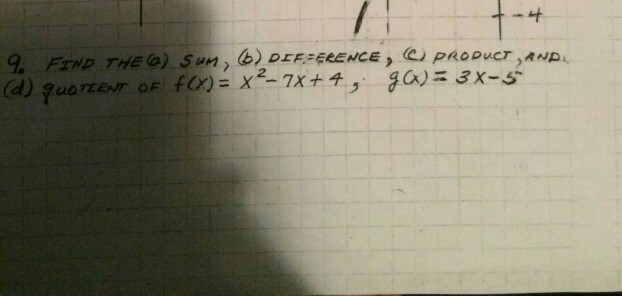 -4
9. FIND THE (a) SUM, (b) DIFFERENCE, (c) PRODUCT, AND
(d) QUOTIENT OF f(x) = x²-7x+4, g(x) = 3x-5